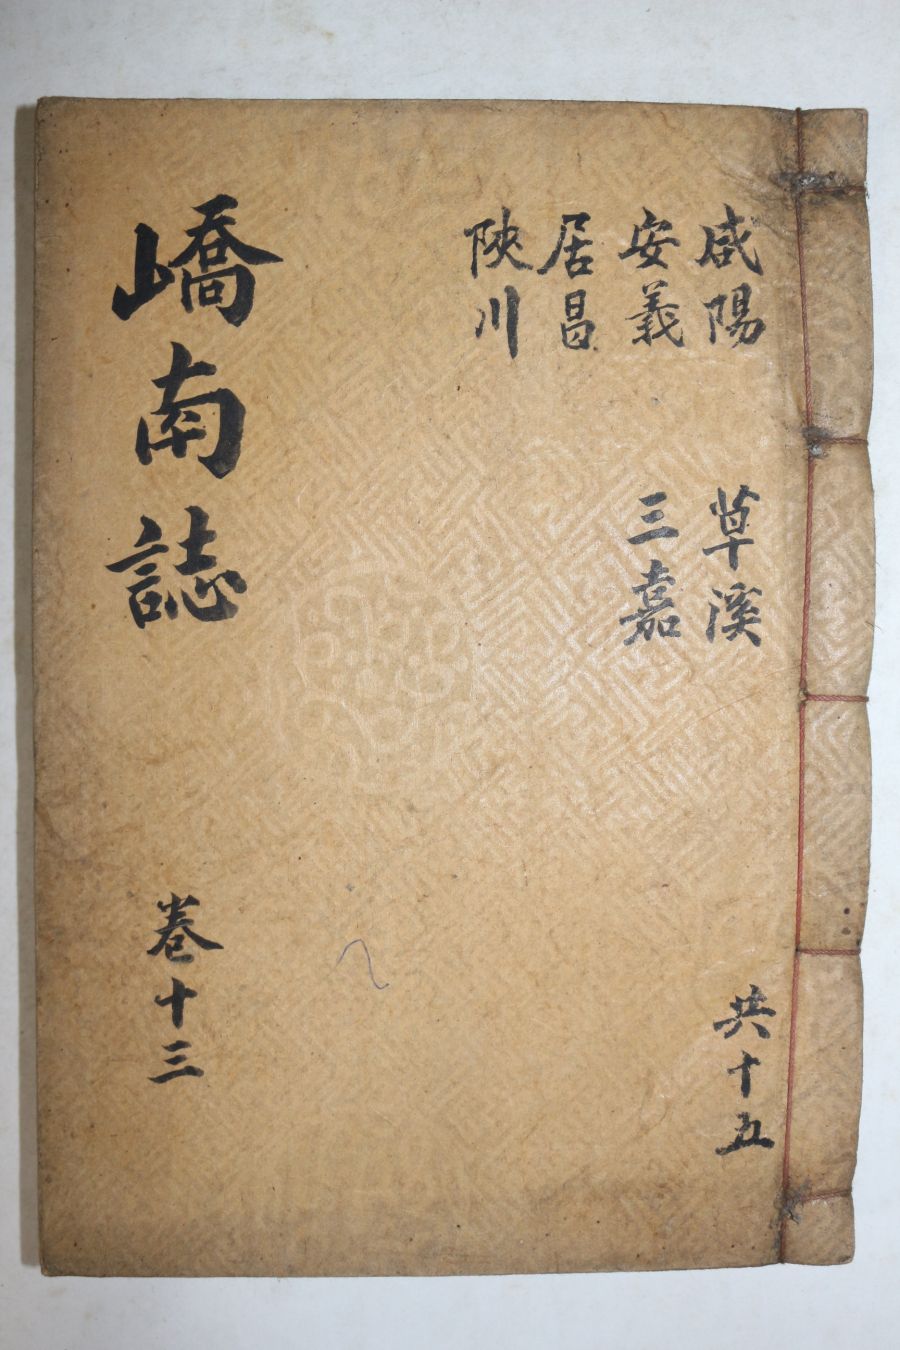 咸陽
安義
居昌
陜川
草溪
三嘉
共十五
嶠南誌
卷十三